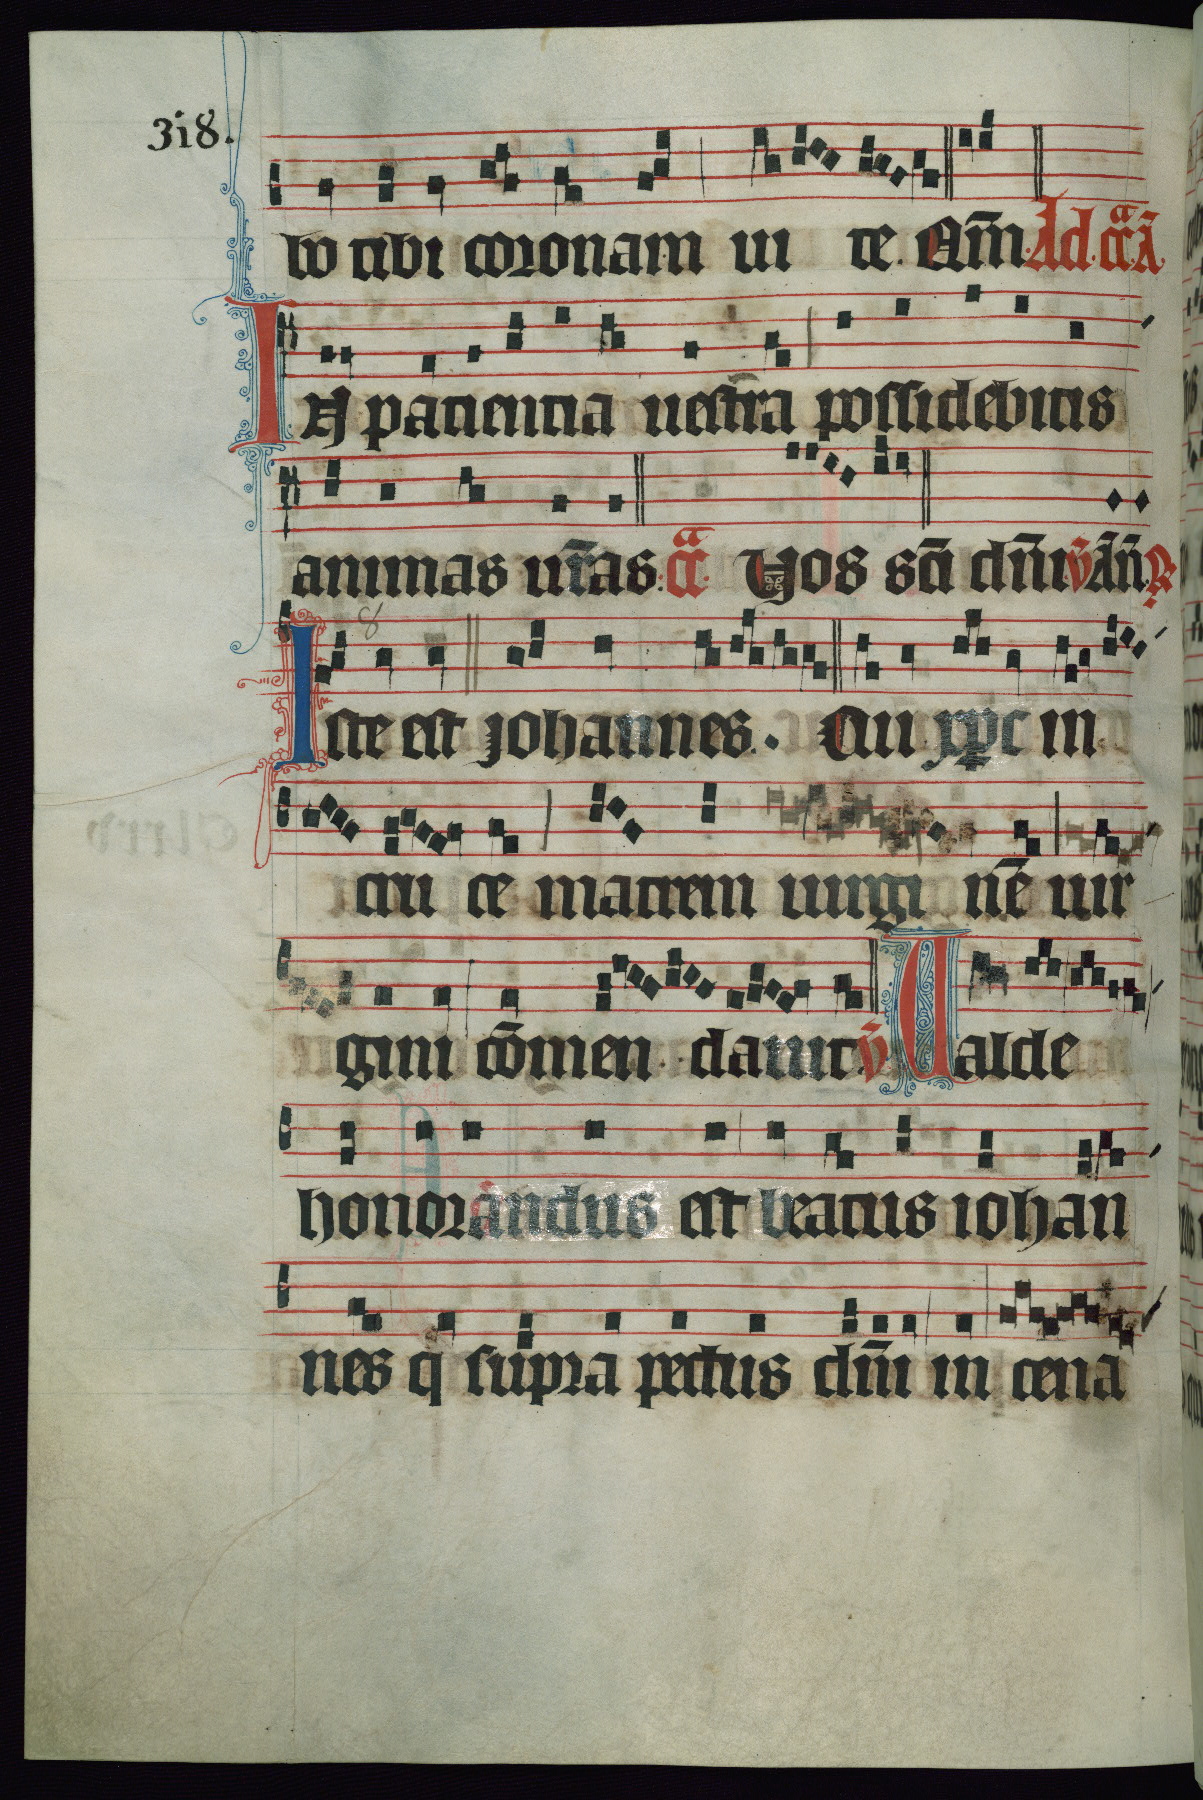 318.
bo tibi coronam ui te. Am̅. Ad c̅ca̅ a̅
In patientia uestr̅a possidebitis
animas ur̅as. Vos sc̅i dn̅i v̅ an̅
8
Iste est Johannes. Cui xp̅c in
cru ce matrem uirgi ne̅ uir
gini co̅men dauit v̅ Ualde
honorandus est beatus iohan
nes q supra pectus dn̅i in cena